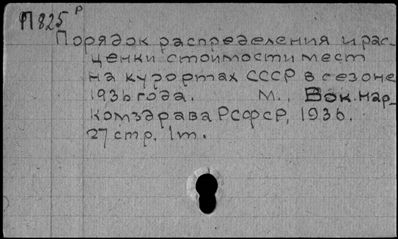 П825ᴾ
Порядок распределения и рас-
ценки стоимости мест
на курортах СССР в сезоне
1936 года. М., Вок. Нар_
Комздрава РСФСР, 1936.
27 стр. 1т.